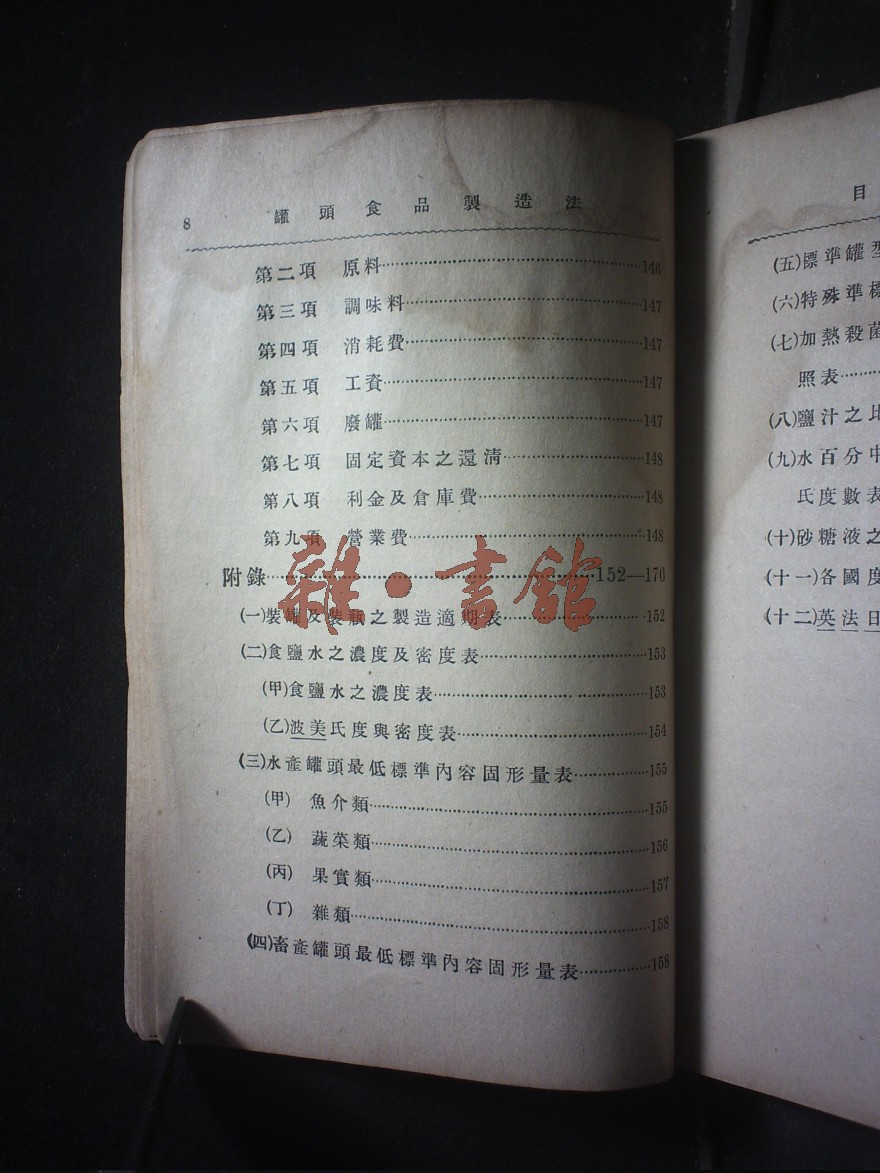 8 罐頭食品製造法
第二項 原料……146
第三項 調味料……147
第四項 消耗費……147
第五項 工資……147
第六項 廢罐……147
第七項 固定資本之還淸……148
第八項 利金及倉庫費……148
第九項 營業費……148
附錄……152—170
(一)裝罐及裝瓶之製造適期表……152
(二)食鹽水之濃度及密度表……153
(甲)食鹽水之濃度表……153
(乙)波美氏度與密度表……154
(三)水產罐頭最低標準內容固形量表……155
(甲) 魚介類……155
(乙) 蔬菜類……156
(丙) 果實類……157
(丁) 雜類……158
(四)畜產罐頭最低標準內容固形量表……158
雜·書館
目
(五)標準罐型
(六)特殊準標
(七)加熱殺菌
照表……
(八)鹽汁之比
(九)水百分中
氏度數表
(十)砂糖液之
(十一)各國度
(十二)英法日